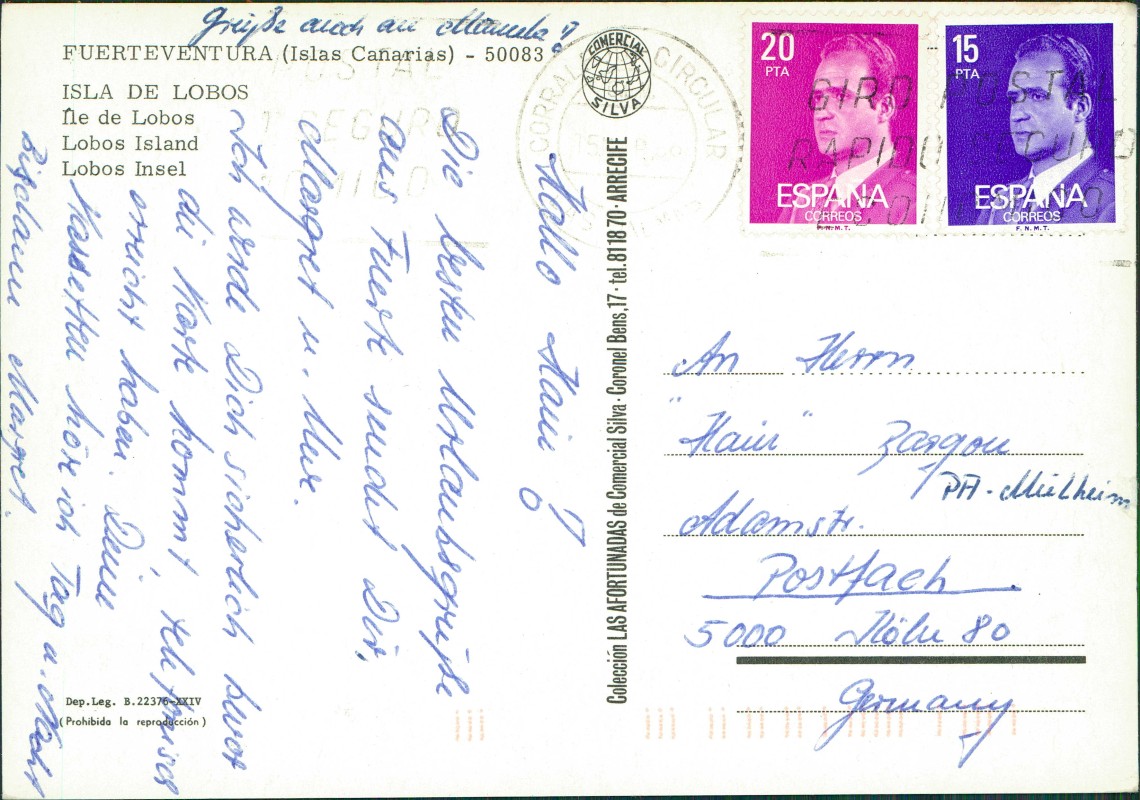 Grüße auch an Manuela!
FUERTEVENTURA (Islas Canarias) - 50083
ISLA DE LOBOS
Île de Lobos
Lobos Island
Lobos Insel
Hallo Hain!
Die besten Urlaubsgrüße
aus Fuerte sendet Dir,
Margret u. Uwe.
Ich werde Dich sicherlich bevor
die Karte kommt, telefonisch
erreicht haben. Deine
Kassetten hör ich Tag u. Nacht
Bis dann Margret.
Dep. Leg. B. 22376-XXIV
(Prohibida la reproducción)
COMERCIAL
SILVA
Colección LAS AFORTUNADAS de Comercial Silva · Coronel Bens, 17 · tel. 81 18 70 · ARRECIFE
CORRALEJO CIRCULAR
20
PTA
ESPAÑA
CORREOS
F.N.M.T.
15
PTA
ESPAÑA
CORREOS
F.N.M.T.
GIRO POSTAL
RAPIDO SEGURO
An Herrn
"Hain" Zargon
PA-Mülheim
Adamstr.
Postfach
5000 Köln 80
Germany